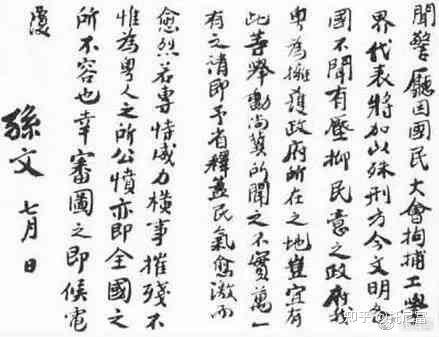 聞警廳因國民大會拘捕工學
界代表將加以殊刑方今文明各
國不聞有壓抑民意之政府我
粵為擁護政府所在之地豈宜有
此等舉動尚冀所聞之不實萬一
有之請即予省釋蓋民氣愈激而
愈烈若專恃威力橫事摧殘不
惟為粵人之所公憤亦即全國之
所不容也幸審圖之即候電
覆
孫文 七月 日
知乎